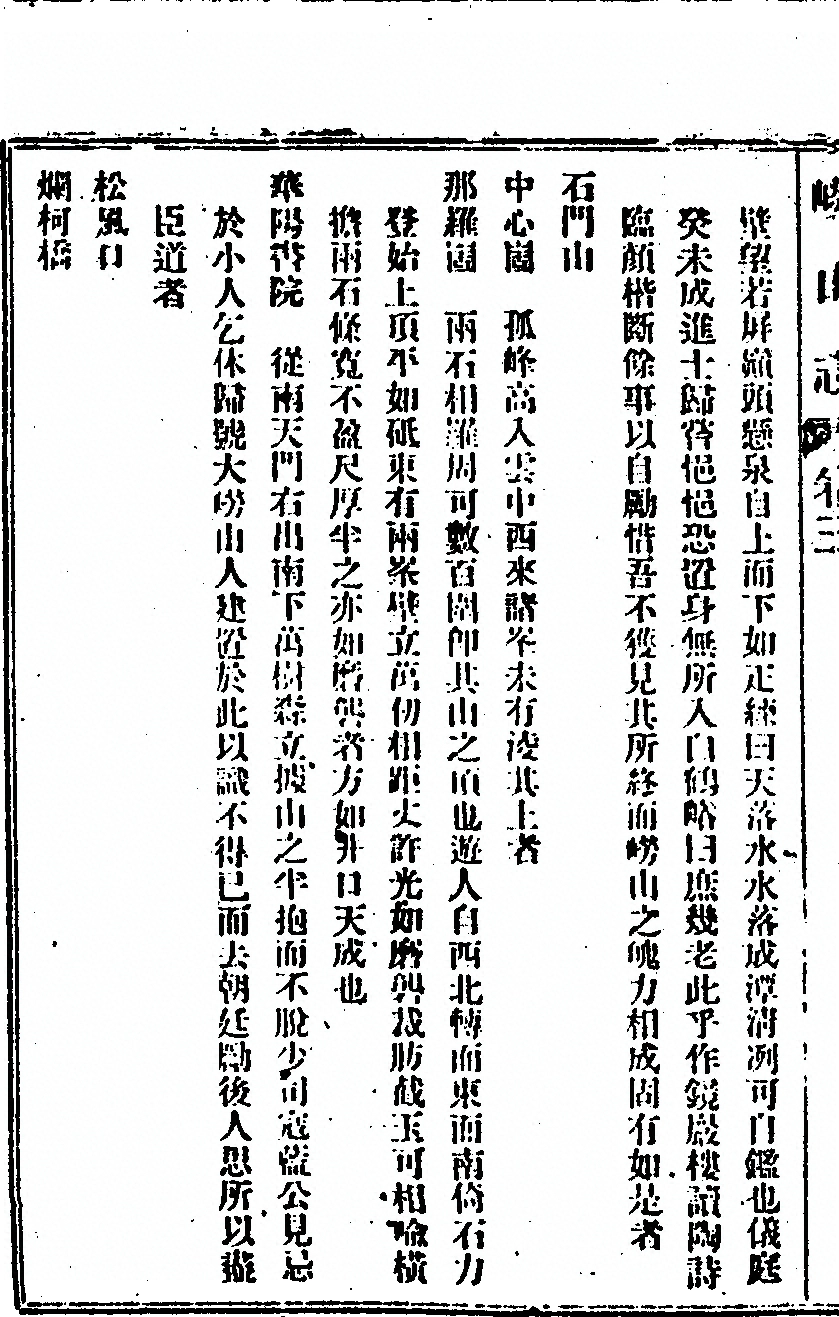 嶗山志 卷三
壁望若屏巓頭懸泉自上而下如疋練曰天落水水落成潭淸冽可自鑑也儀庭
癸未成進士歸嘗悒悒恐置身無所入白鶴峪曰庶幾老此乎作鏡巖樓讀陶詩
臨顏楷斷餘事以自勵惜吾不獲見其所終而嶗山之魄力相成固有如是者
石門山
中心崮　孤峰高入雲中西來諸峯未有淩其上者
那羅崮　兩石相羅周可數百圍卽其山之頂也遊人自西北轉而東而南倚石力
登始上頂平如砥東有兩峯壁立萬仞相距丈許光如磨礱裁肪截玉可相喻橫
擔兩石條寬不盈尺厚半之亦如磨礱者方如升口天成也
華陽書院　從南天門右出南下萬樹森立據山之半抱而不脫少司寇藍公見忌
於小人乞休歸號大嶗山人建置於此以識不得已而去朝廷勵後人思所以遊
臣道者
松風口
爛柯橋